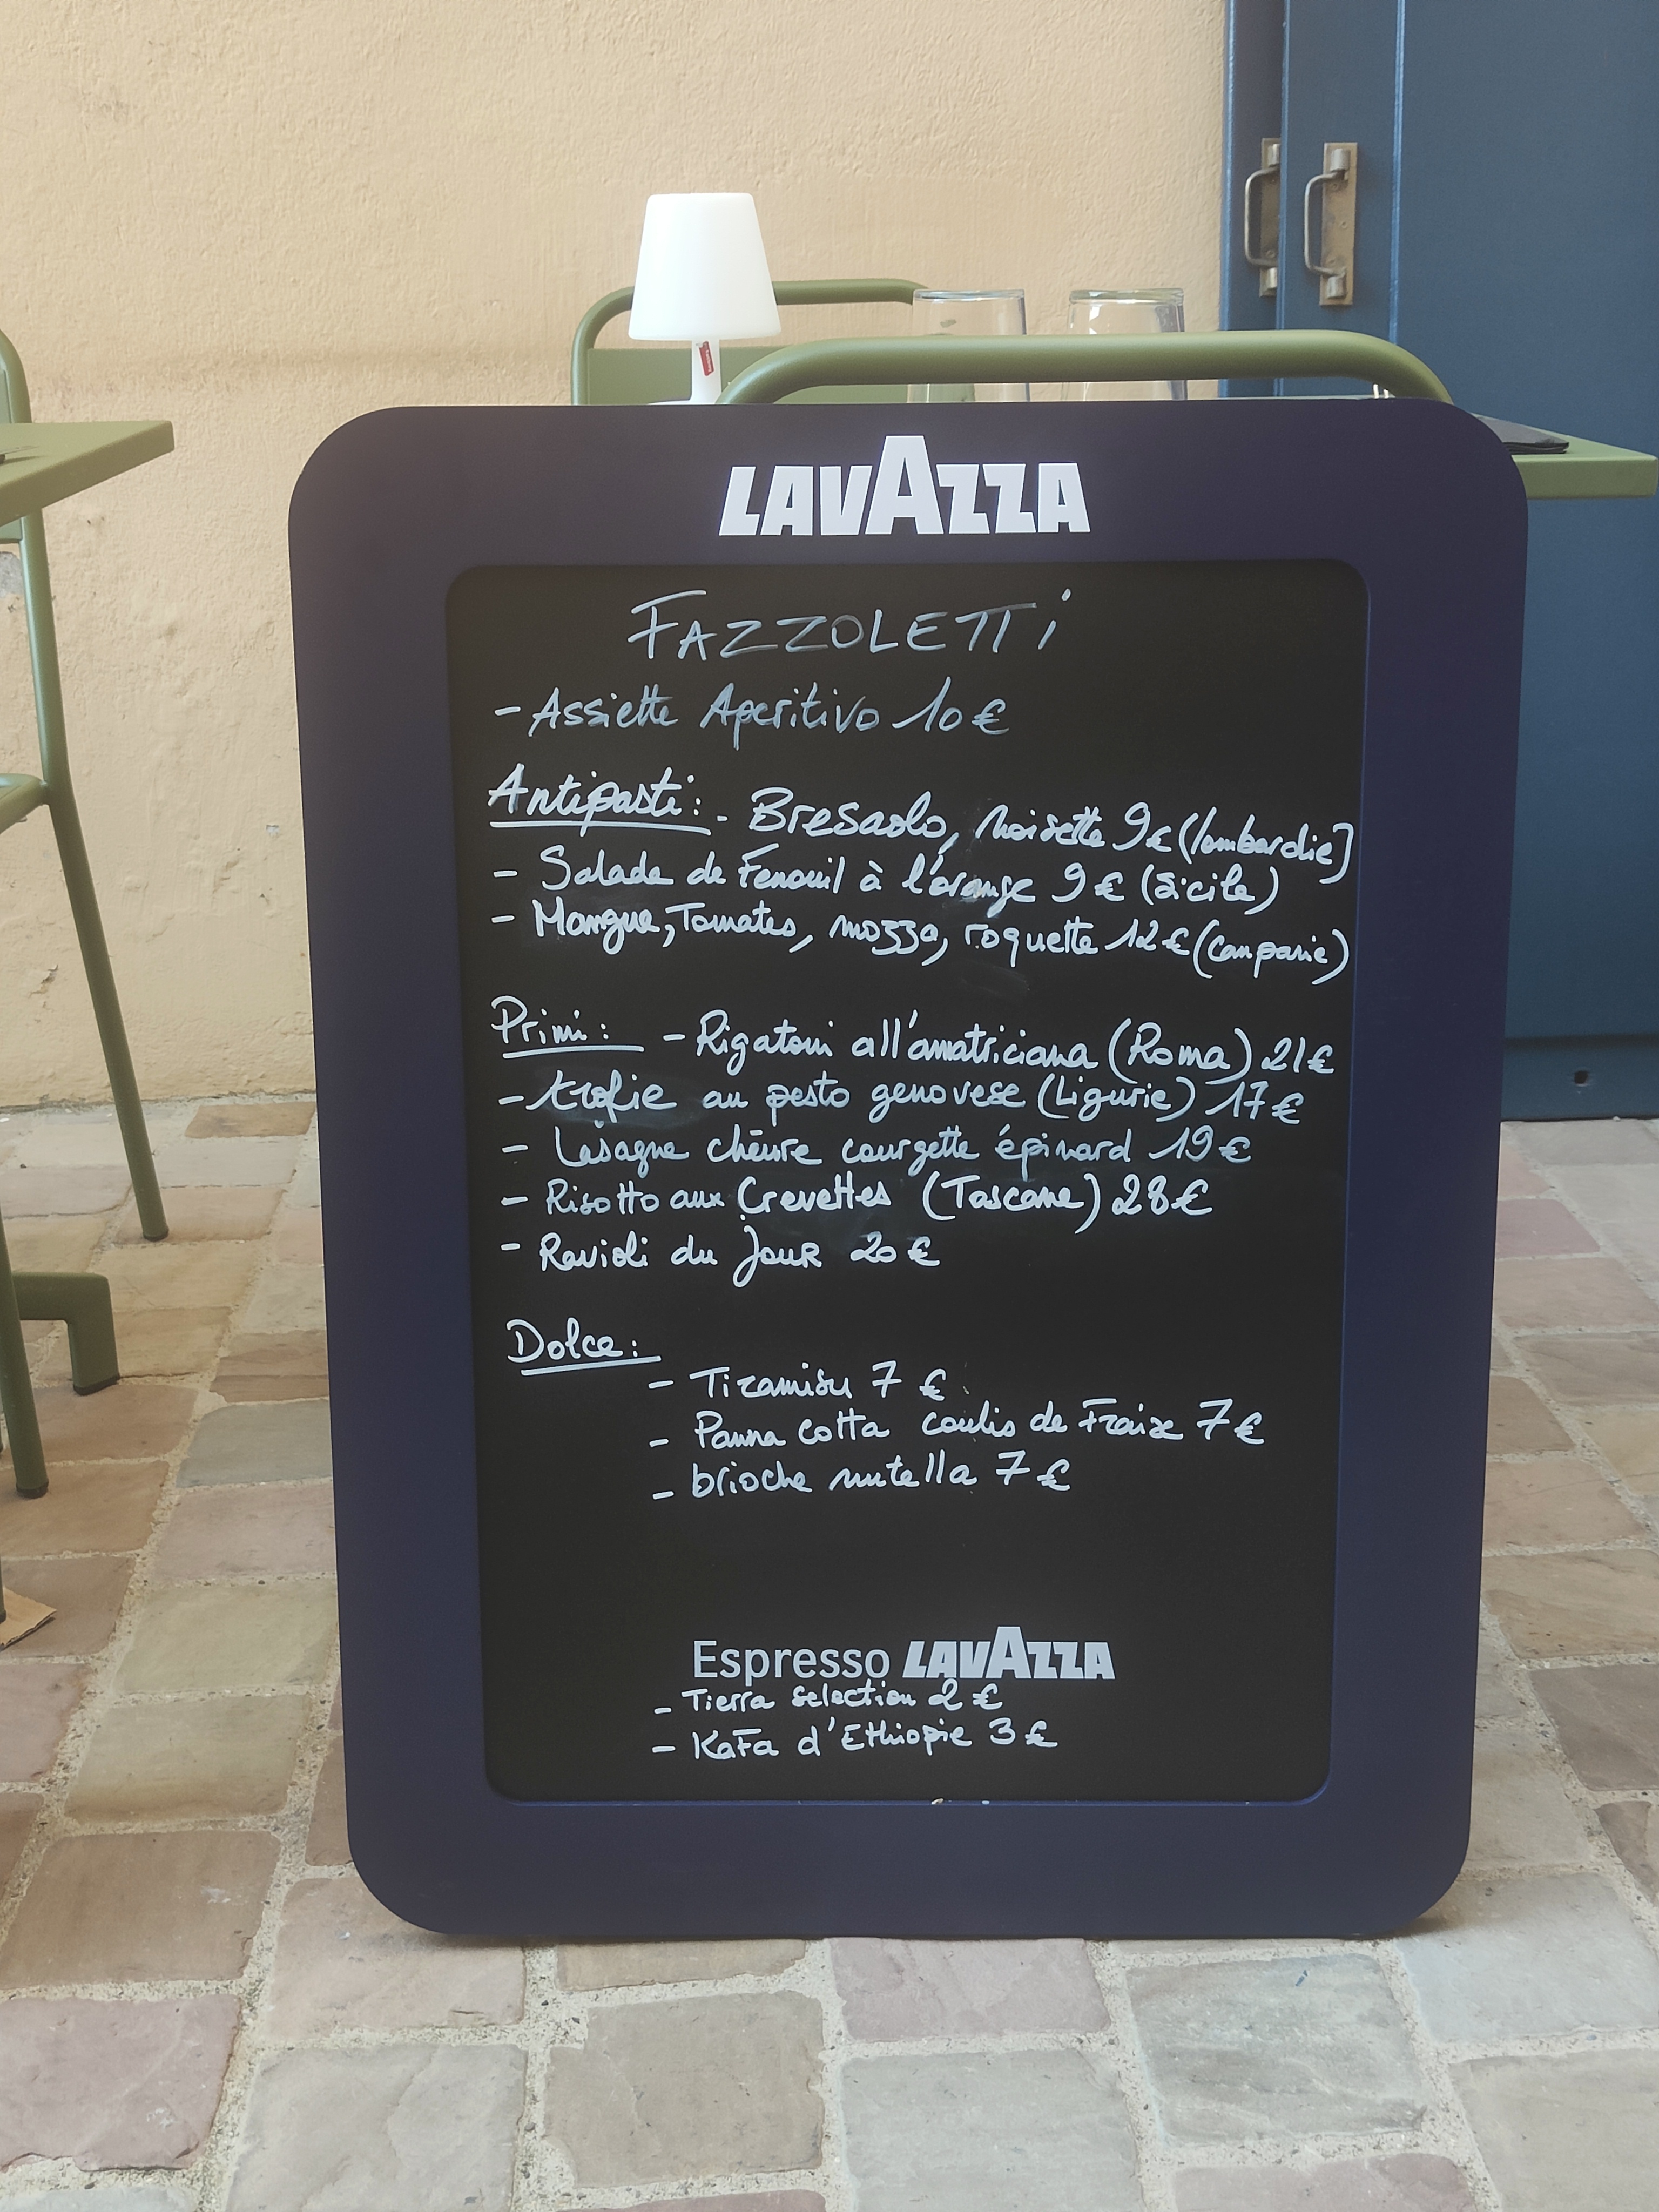 LAVAZZA
FAZZOLETTi
- Assiette Aperitivo 10€
Antipasti: - Bresaola, noisette 9€ (lombardie)
- Salade de Fenouil à l'orange 9€ (Sicile)
- Mangue, Tomates, mozza, roquette 12€ (campanie)
Primi: - Rigatoni all'amatriciana (Roma) 21€
- trofie au pesto genovese (Ligurie) 17€
- Lasagne chèvre courgette épinard 19€
- Risotto aux Crevettes (Toscane) 28€
- Ravioli du Jour 20€
Dolce:
- Tiramisu 7€
- Panna cotta coulis de Fraise 7€
- brioche nutella 7€
Espresso LAVAZZA
- Tierra selection 2€
- KaFa d'Ethiopie 3€